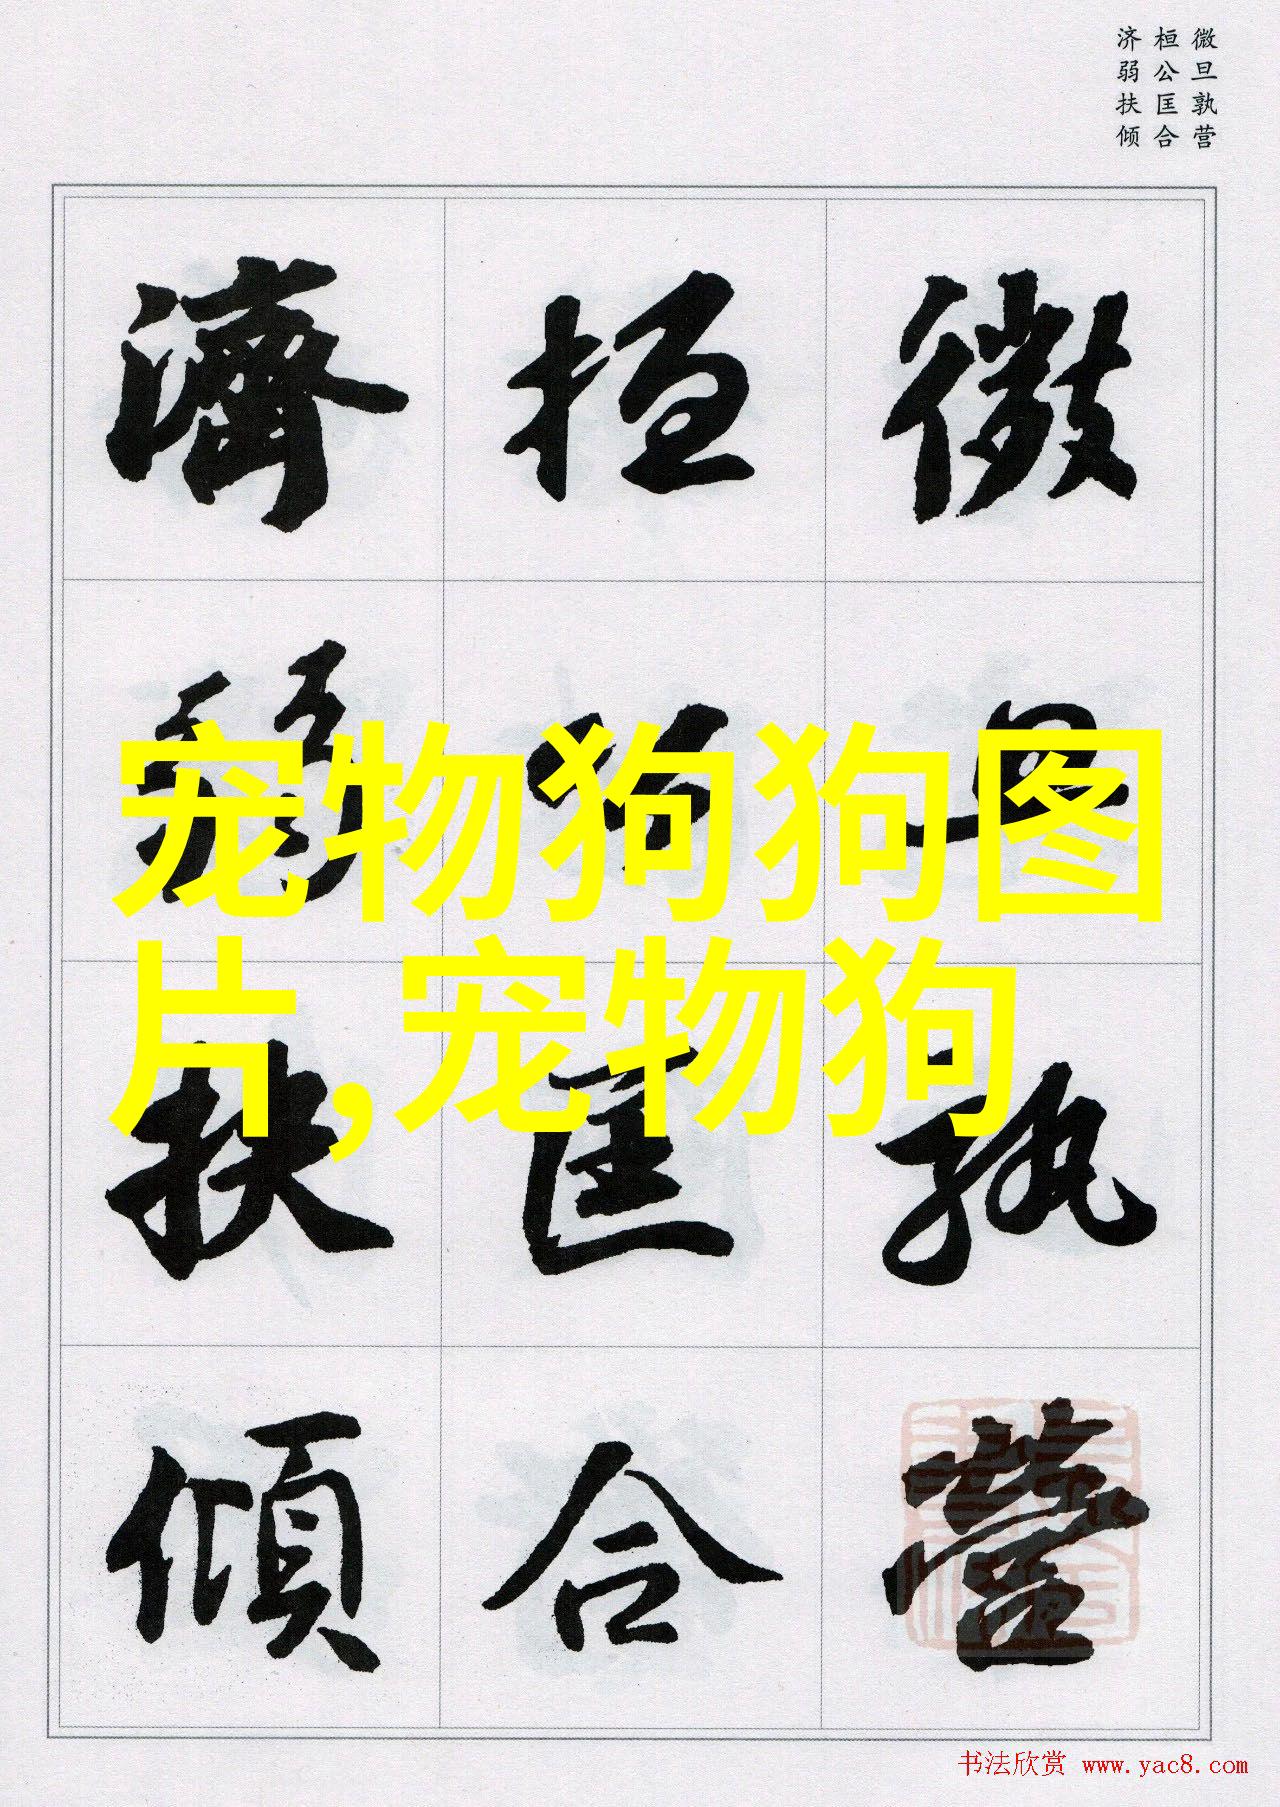 微旦孰营
桓公匡合
济弱扶倾
微旦孰營
桓公匡合
濟弱扶傾
宠物狗狗图
片,宠物狗
书法欣赏 www.yac8.com